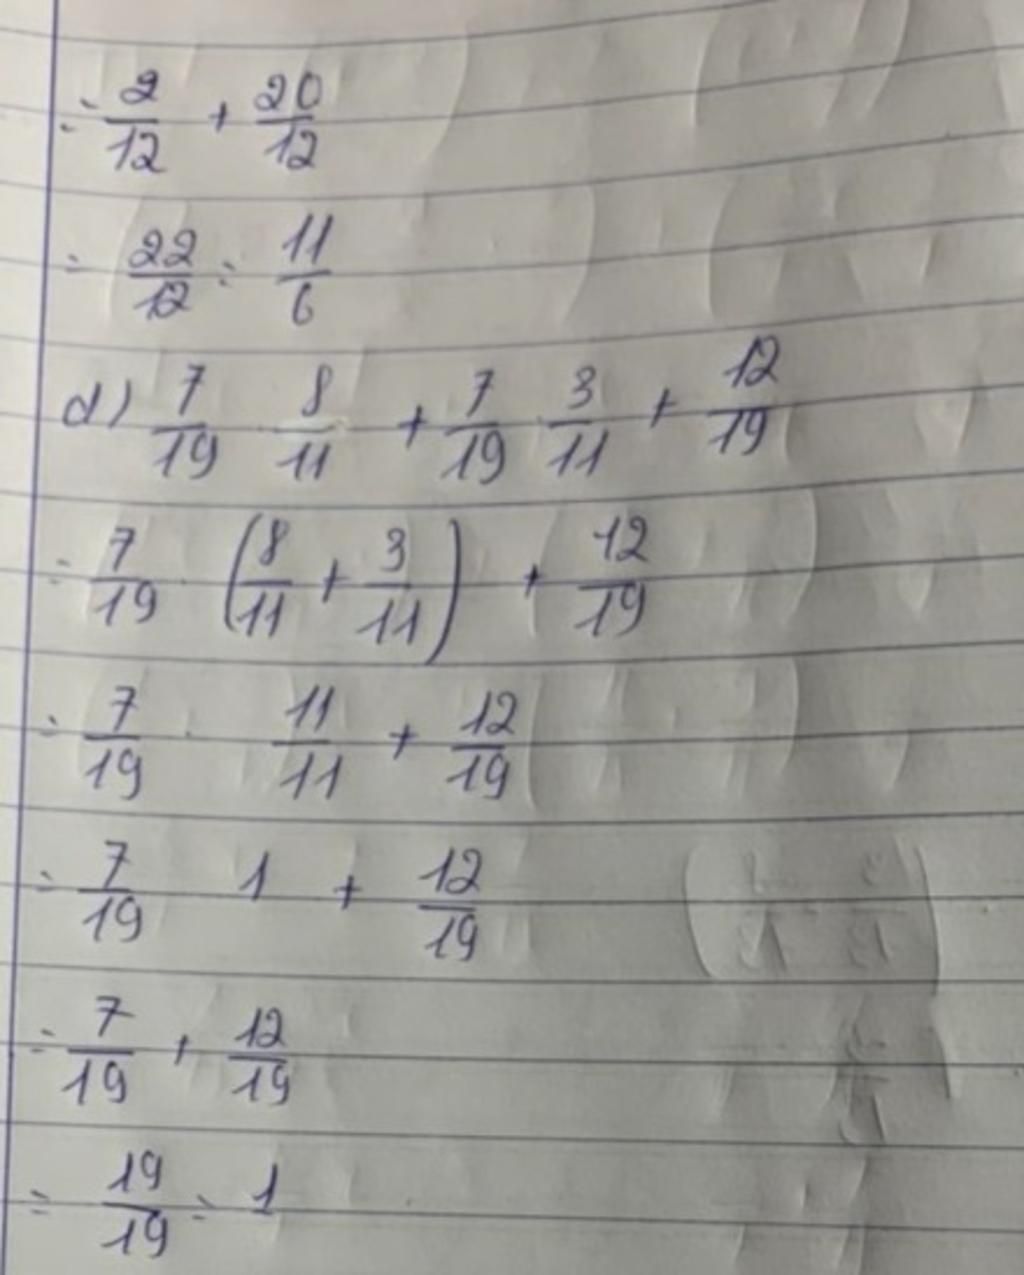 = 2/12 + 20/12
= 22/12 = 11/6
d) 7/19 · 8/11 + 7/19 · 3/11 + 12/19
= 7/19 · (8/11 + 3/11) + 12/19
= 7/19 · 11/11 + 12/19
= 7/19 1 + 12/19
= 7/19 + 12/19
= 19/19 = 1